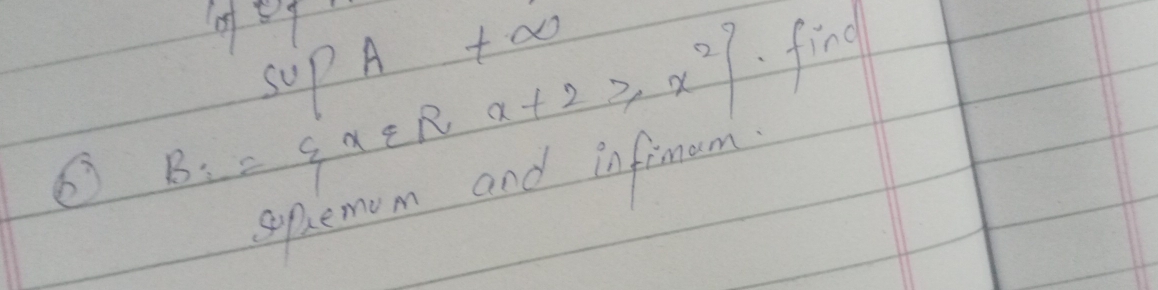 of
sup A + ∞
b) B := { x ∈ R x + 2 ⩾ x² } . find
supremum and infimum .